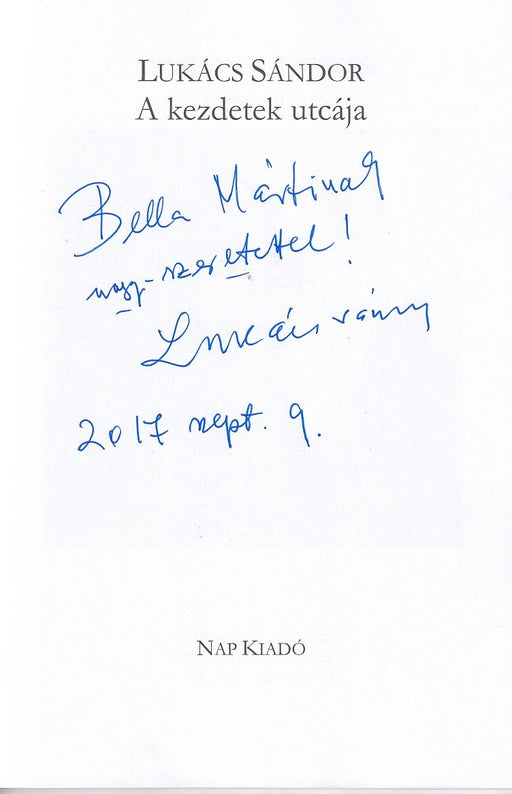 LUKÁCS SÁNDOR
A kezdetek utcája
Bella Mártinak
nagy-szeretettel!
Lukács Sándor
2017 szept. 9.
NAP KIADÓ